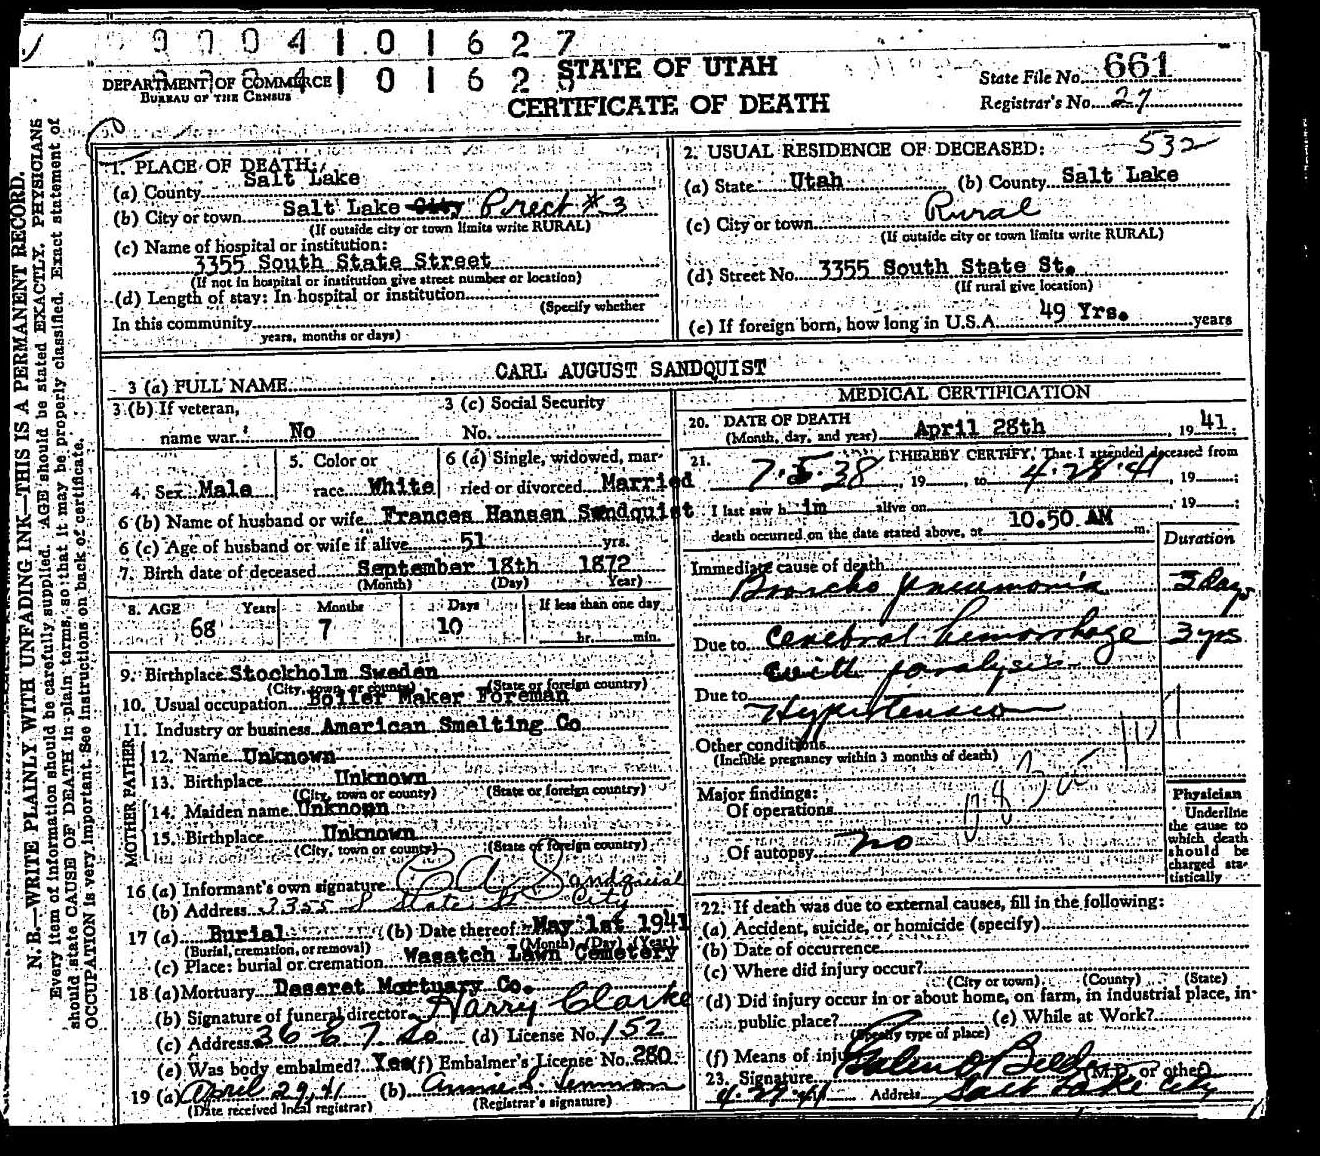 9 0 0 4 1 0 1 6 2 7
STATE OF UTAH
CERTIFICATE OF DEATH
DEPARTMENT OF COMMERCE
BUREAU OF THE CENSUS
1 0 1 6 2
State File No. 661
Registrar's No. 27
N. B.—WRITE PLAINLY WITH UNFADING INK—THIS IS A PERMANENT RECORD.
Every item of information should be carefully supplied. AGE should be stated EXACTLY. PHYSICIANS
should state CAUSE OF DEATH in plain terms, so that it may be properly classified. Exact statement of
OCCUPATION is very important. See instructions on back of certificate.
1. PLACE OF DEATH:
(a) County Salt Lake
(b) City or town Salt Lake City Prect #3
(If outside city or town limits write RURAL)
(c) Name of hospital or institution:
3355 South State Street
(If not in hospital or institution give street number or location)
(d) Length of stay: In hospital or institution
(Specify whether
In this community
years, months or days)
2. USUAL RESIDENCE OF DECEASED: 532
(a) State Utah (b) County Salt Lake
(c) City or town Rural
(If outside city or town limits write RURAL)
(d) Street No. 3355 South State St.
(If rural give location)
(e) If foreign born, how long in U.S.A. 49 Yrs. years
3 (a) FULL NAME CARL AUGUST SANDQUIST
3 (b) If veteran,
name war No
3 (c) Social Security
No.
4. Sex Male
5. Color or
race White
6 (a) Single, widowed, mar-
ried or divorced Married
6 (b) Name of husband or wife Frances Hansen Sandquist
6 (c) Age of husband or wife if alive 51 yrs.
7. Birth date of deceased September 18th 1872
(Month) (Day) Year)
8. AGE Years Months Days If less than one day
68 7 10 hr. min.
9. Birthplace Stockholm Sweden
(City, town or county) (State or foreign country)
10. Usual occupation Boiler Maker Foreman
11. Industry or business American Smelting Co
FATHER
12. Name Unknown
13. Birthplace Unknown
(City, town or county) (State or foreign country)
MOTHER
14. Maiden name Unknown
15. Birthplace Unknown
(City, town or county) (State of foreign country)
16 (a) Informant's own signature C A Sandquist
(b) Address 3355 S State St City
17 (a) Burial (b) Date thereof May 1st 1941
(Burial, cremation, or removal) (Month) (Day) (Year)
(c) Place: burial or cremation Wasatch Lawn Cemetery
18 (a) Mortuary Deseret Mortuary Co.
(b) Signature of funeral director Harry Clarke
(c) Address 36 E 7 So (d) License No. 152
(e) Was body embalmed? Yes (f) Embalmer's License No. 280
19 (a) April 29, 41 (b) Annie S. Lemmon
(Date received local registrar) (Registrar's signature)
MEDICAL CERTIFICATION
20. DATE OF DEATH
(Month, day, and year) April 28th, 1941;
21. I HEREBY CERTIFY, That I attended deceased from
7-5-38, 19 , to 4-28-41, 19 ;
I last saw him alive on , 19 ;
death occurred on the date stated above, at 10.50 AM m.
Duration
Immediate cause of death
Broncho pneumonia 3 days
Due to Cerebral hemorrhage 3 yrs
with paralysis
Due to
Hypertension
Other conditions
(Include pregnancy within 3 months of death)
Major findings:
Of operations
Of autopsy no
Physician
Underline
the cause to
which death
should be
charged sta-
tistically
22. If death was due to external causes, fill in the following:
(a) Accident, suicide, or homicide (specify)
(b) Date of occurrence
(c) Where did injury occur?
(City or town) (County) (State)
(d) Did injury occur in or about home, on farm, in industrial place, in
public place? (e) While at Work?
(Specify type of place)
(f) Means of injury
23. Signature (M.D. or other)
4-29-41 Address Salt Lake City